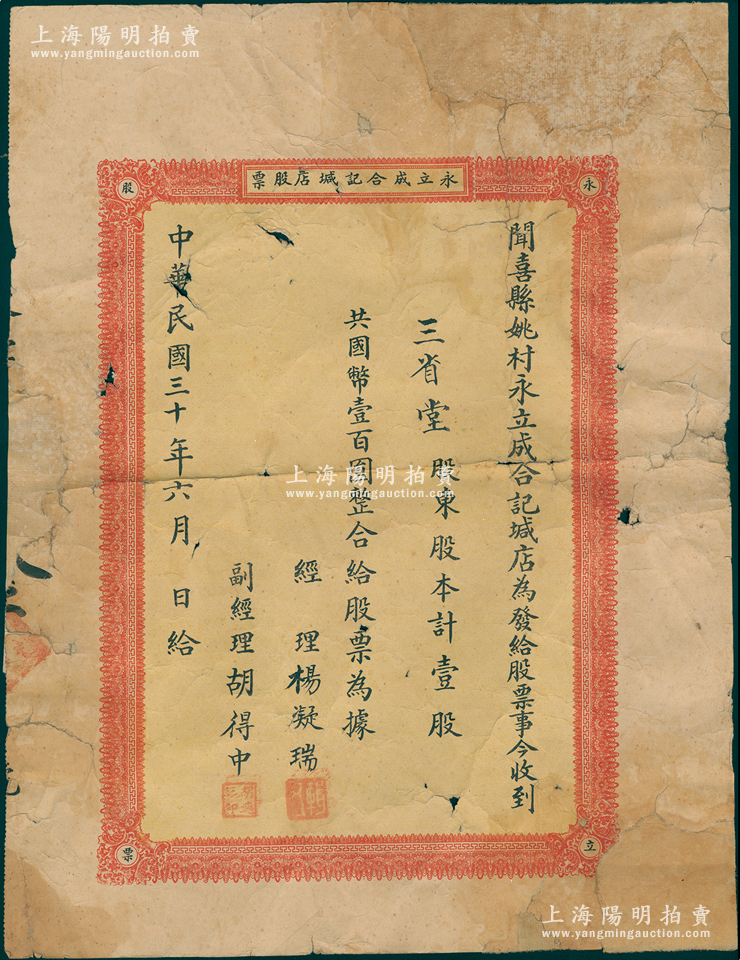 上海陽明拍賣
www.yangmingauction.com
上海陽明拍賣
www.yangmingauction.com
永立成合記堿店股票
永
立
股
票
聞喜縣姚村永立成合記堿店為發給股票事今收到
三省堂股東股本計壹股
共國幣壹百圓整合給股票為據
經理楊凝瑞
副經理胡得中
中華民國三十年六月 日給
上海陽明拍賣
www.yangmingauction.com
上海陽明拍賣
www.yangmingauction.com